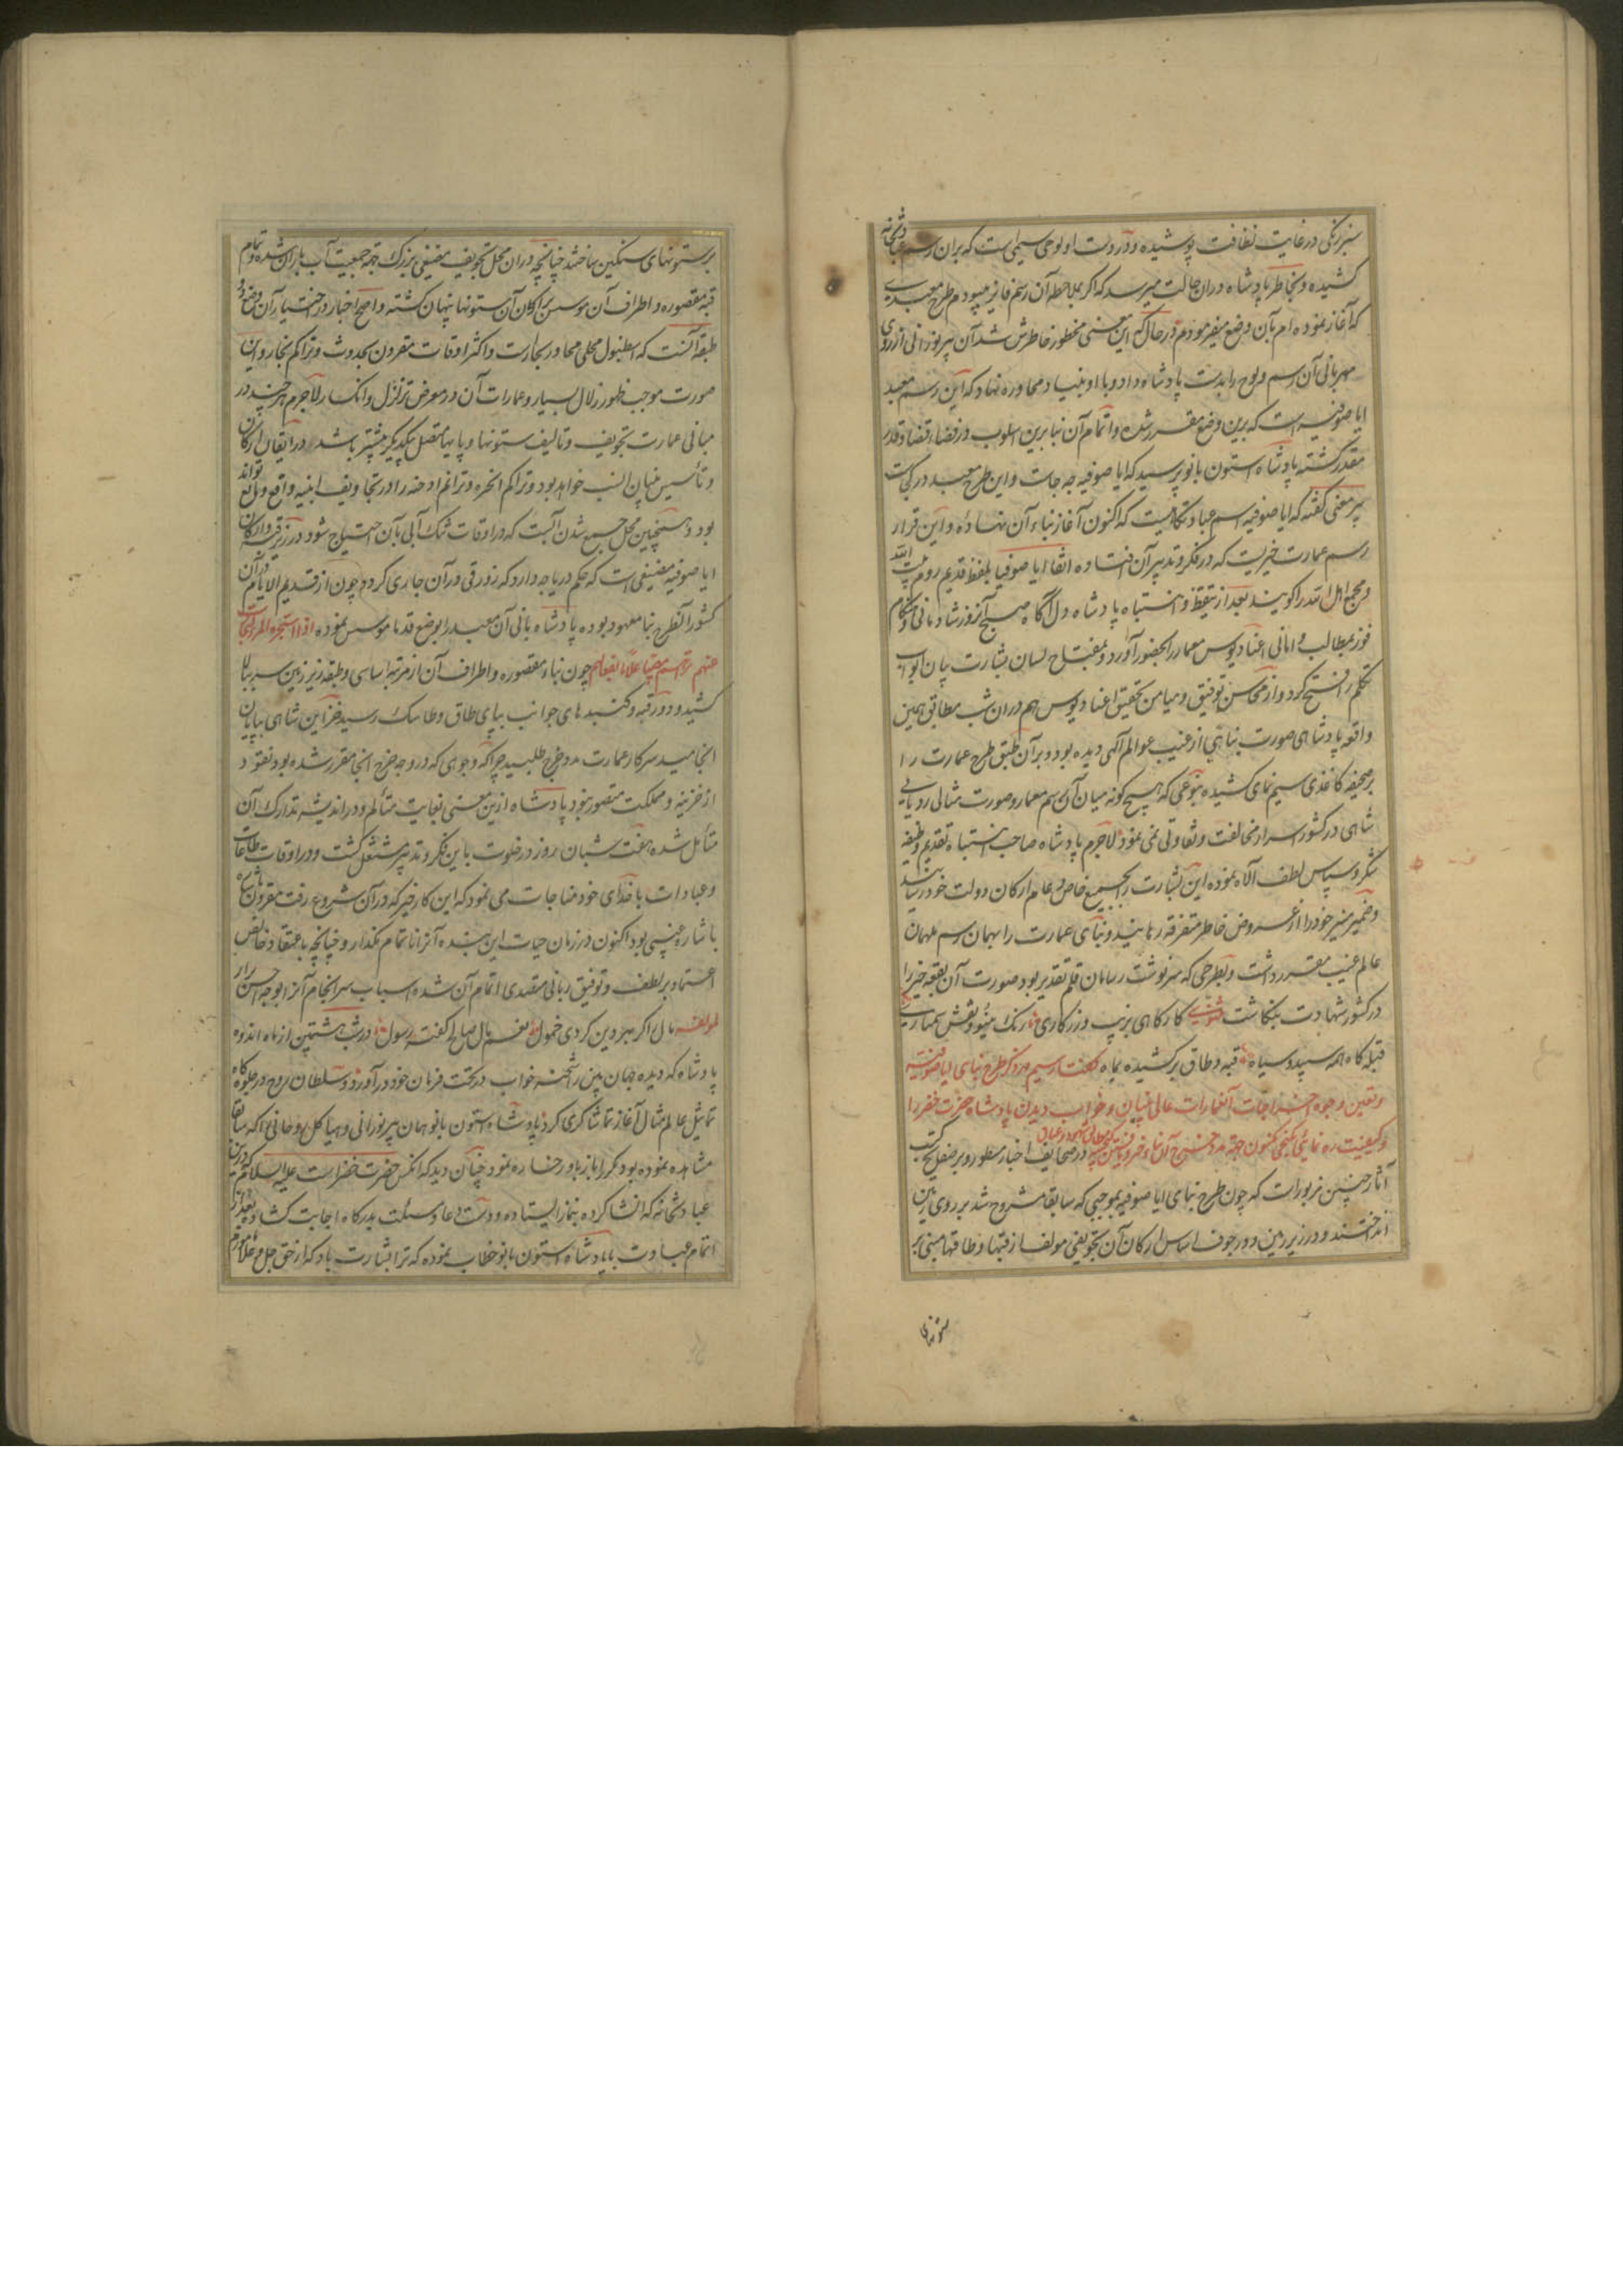 سبز رنگی در غایت نظافت پوشیده و در دست او لوحی سیمی است که بر آن رسم عبادتخانه
کشیده و بخاطر پادشاه در ان حالت میرسد که اگر بملاحظه آن رسم فایز میبودم طرح معبدی
که آغاز نموده ام بآن وضع میفرمودم در حال که این معنی مخطور خاطرش شد آن پیر نورانی از روی
مهربانی آن رسم و لوح را بدست پادشاه داد و با او بنیاد محاوره نهاد که این رسم معبد
ایا صوفیه است که برین وضع مقرر شده و اتمام آن بنا برین اسلوب در فضاء قضا و قدر
مقدر گشته پادشاه استون بانو پرسید که ایا صوفیه چه جاست و این طرح معبد در کجاست
پیر معنی گفته که ایا صوفیه اسم عبادتگاهیست که اکنون آغاز بناء آن نهاده و این قرار
رسم عمارت خیریت که در فکر و تدبیر آن افتاده اتفاقا ایا صوفیا بلفظ قدیم روم بیت الله
و مجمع اهل الله را گویند بعد از تیقظ و انتباه پادشاه دل آگاه صبح آنروز شادمانی و هنگام
فوز بمطالب و امانی اغنادیوس معمار را بحضور آورد و بمفتاح لسان بشارت بیان ابواب
تکلم را فتح کرد و از محاسن توفیق و میامن تحقیق اغنادیوس هم در ان شب مطابق همین
واقعه پادشاهی صورت بنایی از غیب عوالم آلهی دیده بود و بر آن طبق طرح عمارت را
بر صحیفه کاغذی سیم نمای کشیده بنوعی که هیچ گونه میان آن رسم معمار و صورت مثالی رویایی
شاهی در کشور اسرار مخالفت و تفاوتی نمی نمود لاجرم پادشاه صاحب انتباه تقدیم وظیفه
شکر و سپاس لطف آلاه نموده این بشارت را بجمیع خاص و عام ارکان دولت خود رسانید
و ضمیر منیر خود را از عروض خاطر متفرقه رهانید و بنای عمارت را بهمان رسم ملهمان
عالم غیب مقرر داشت و بطرحی که سرنوشت رسامان قلم تقدیر بود صورت آن بقعه خیر را
در کشور شهادت بنگاشت مثنوی کارگاهی بزیب و زرکاری رنگ مینو و نقش معماری
قبله گاه همه سپید و سیاه قبه و طاق بر کشیده بماه گفتار سیم در ذکر طرح بنای ایا صوفیه
و تعیین وجوه اخراجات آن عمارات عالی بنیان و خواب دیدن پادشاه حضرت خضر را
و کیفیت ره نمایی بگنجی مکنون جهة مدد خرج آن بناء در صحایف اخبار مسطور و بر صفایح کتب
آثار چنین مزبور است که چون طرح بنای ایا صوفیه بموجبی که سابقا مشروح شد بر روی زمین
انداختند و در زیر زمین و در جوف اساس ارکان آن تجویفی مولف از قبها و طاقها مبنی بر
ستونهای
بر ستونهای سنگین ساختند چنانچه در ان محل تجویف مصنفی بزرگ جهة جمعیت آب باران شده و تمام
قبه مقصوره و اطراف آن موسس بر ارکان آن ستونها پنهان گشته و اصح اخبار در اختیار آن وضع
طبقه آنست که اسطنبول محلی مجاور بحارست و اکثر اوقات مقرون بحدوث و تراکم بخار و این
صورت موجب ظهور زلال بسیار و عمارات آن در معرض تزلزل و انکسار لاجرم هر چند در
مبانی عمارت تجویف و تالیف ستونها و پایها متصل یکدیگر بیشتر باشد در اتقان ارکان
و تأسیس بنیان انسب خواهد بود و تراکم ابخره و تراغم ادخنه را در تجاویف ابنیه واقع و مانع تواند
بود و همچنین محل جمع شدن آبست که در اوقات تنگ آبی بآن احتیاج شود در زیر قبه و ارکان
ایا صوفیه مصنعی است که حکم دریاچه دارد که زورقی در آن جاری گردد چون از قدیم الایام در آن
کشور آنطرح بنا معهود بوده پادشاه بانی آن معبد را بوضع قدما موسس نموده
چون بناء مقصوره و اطراف آن از مرتبه اساسی و طبقه زیر زمین سر ببالا
کشید و دور قبه و گنبدهای جوانب بپای طاق و طاسک رسید خزاین شاهی بپایان
انجامید سرکار عمارت مدد خرج طلبید چرا که وجوهی که در وجه خرج انجا مقرر شده بود نقود
از خزینه و مملکت متصور نبود پادشاه ازین معنی بغایت متألم و در اندیشه تدارک آن
متأمل شده هفت شبان روز در خلوت باین فکر و تدبیر مشتغل گشت و در اوقات طاعات
و عبادات با خدای خود مناجات می نمود که این کار خیر که در آن شروع رفت مقرون
باشاره غیبی بود اکنون در زمان حیات این بنده آنرا ناتمام مگذار و چنانچه باعتقاد خالص
اعتماد بر لطف و توفیق ربانی متصدی اتمام آن شده اسباب سرانجام آنرا بوجه احسن برآر
لمولفه مال را گر بهر دین کردی حمول نعم مال صالح گفته رسول در شب هشتمین از ماه اندوه
پادشاه که دیده جهان بین را شحنه خواب در تحت فرمان خود در آورد و سلطان روح در جلوه گاه
تماثیل عالم مثال آغاز تماشاگری کرد پادشاه استون بانو همان پیر نورانی و هیاکل روحانی را که سابقا
مشاهده نموده بود مکررا باز باور خساره نمود چنان دید که آنکس حضرت خضر است علیه السلام که درین
عبادتخانه که انشا کرده بنماز ایستاده و دست دعا و مسئلت بدرگاه اجابت گشاده بعد از
اتمام عبادت با پادشاه استون بانو خطاب نموده که ترا بشارت باد که از حق جل و علا